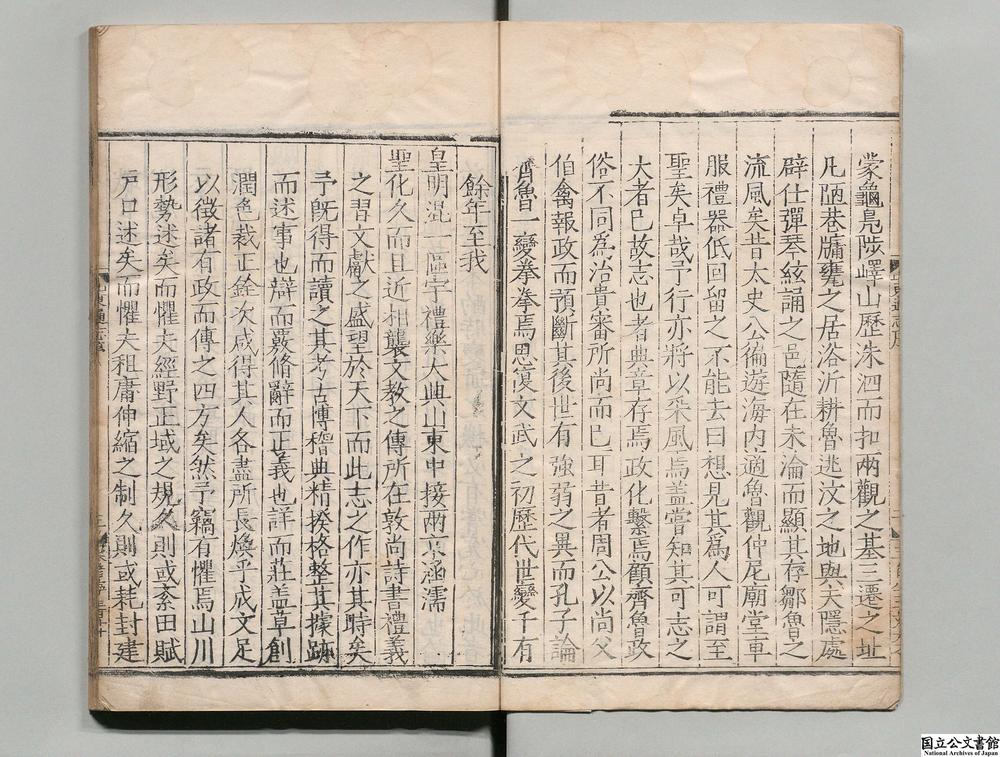 蒙龜鳧陟嶧山歷洙泗而扣兩觀之基三遷之址
凡陋巷牖甕之居浴沂耕魯逃汶之地與夫隱處
辟仕彈琴絃誦之邑隨在未淪而顯其存鄒魯之
流風矣昔太史公徧遊海内適魯觀仲尼廟堂車
服禮器低回留之不能去曰想見其爲人可謂至
聖矣卓哉予行亦將以采風焉盖嘗知其可志之
大者已故志也者典章存焉政化繫焉顧齊魯政
俗不同爲治貴審所尚而已耳昔者周公以尚父
伯禽報政而預斷其後世有強弱之異而孔子論
齊魯一變拳拳焉思復文武之初歷代世變千有
餘年至我
皇明混一區宇禮樂大典山東中接兩京涵濡
聖化久而且近相襲文教之傳所在敦尚詩書禮義
之習文獻之盛望於天下而此志之作亦其時矣
予旣得而讀之其考古博稽典精揆格整其據跡
而述事也辯而覈脩辭而正義也詳而莊盖草創
潤色裁正銓次咸得其人各盡所長煥乎成文足
以徵諸有政而傳之四方矣然予竊有懼焉山川
形勢述矣而懼夫經野正域之規久則或紊田賦
戶口述矣而懼夫租庸伸縮之制久則或耗封建
国立公文書館
National Archives of Japan